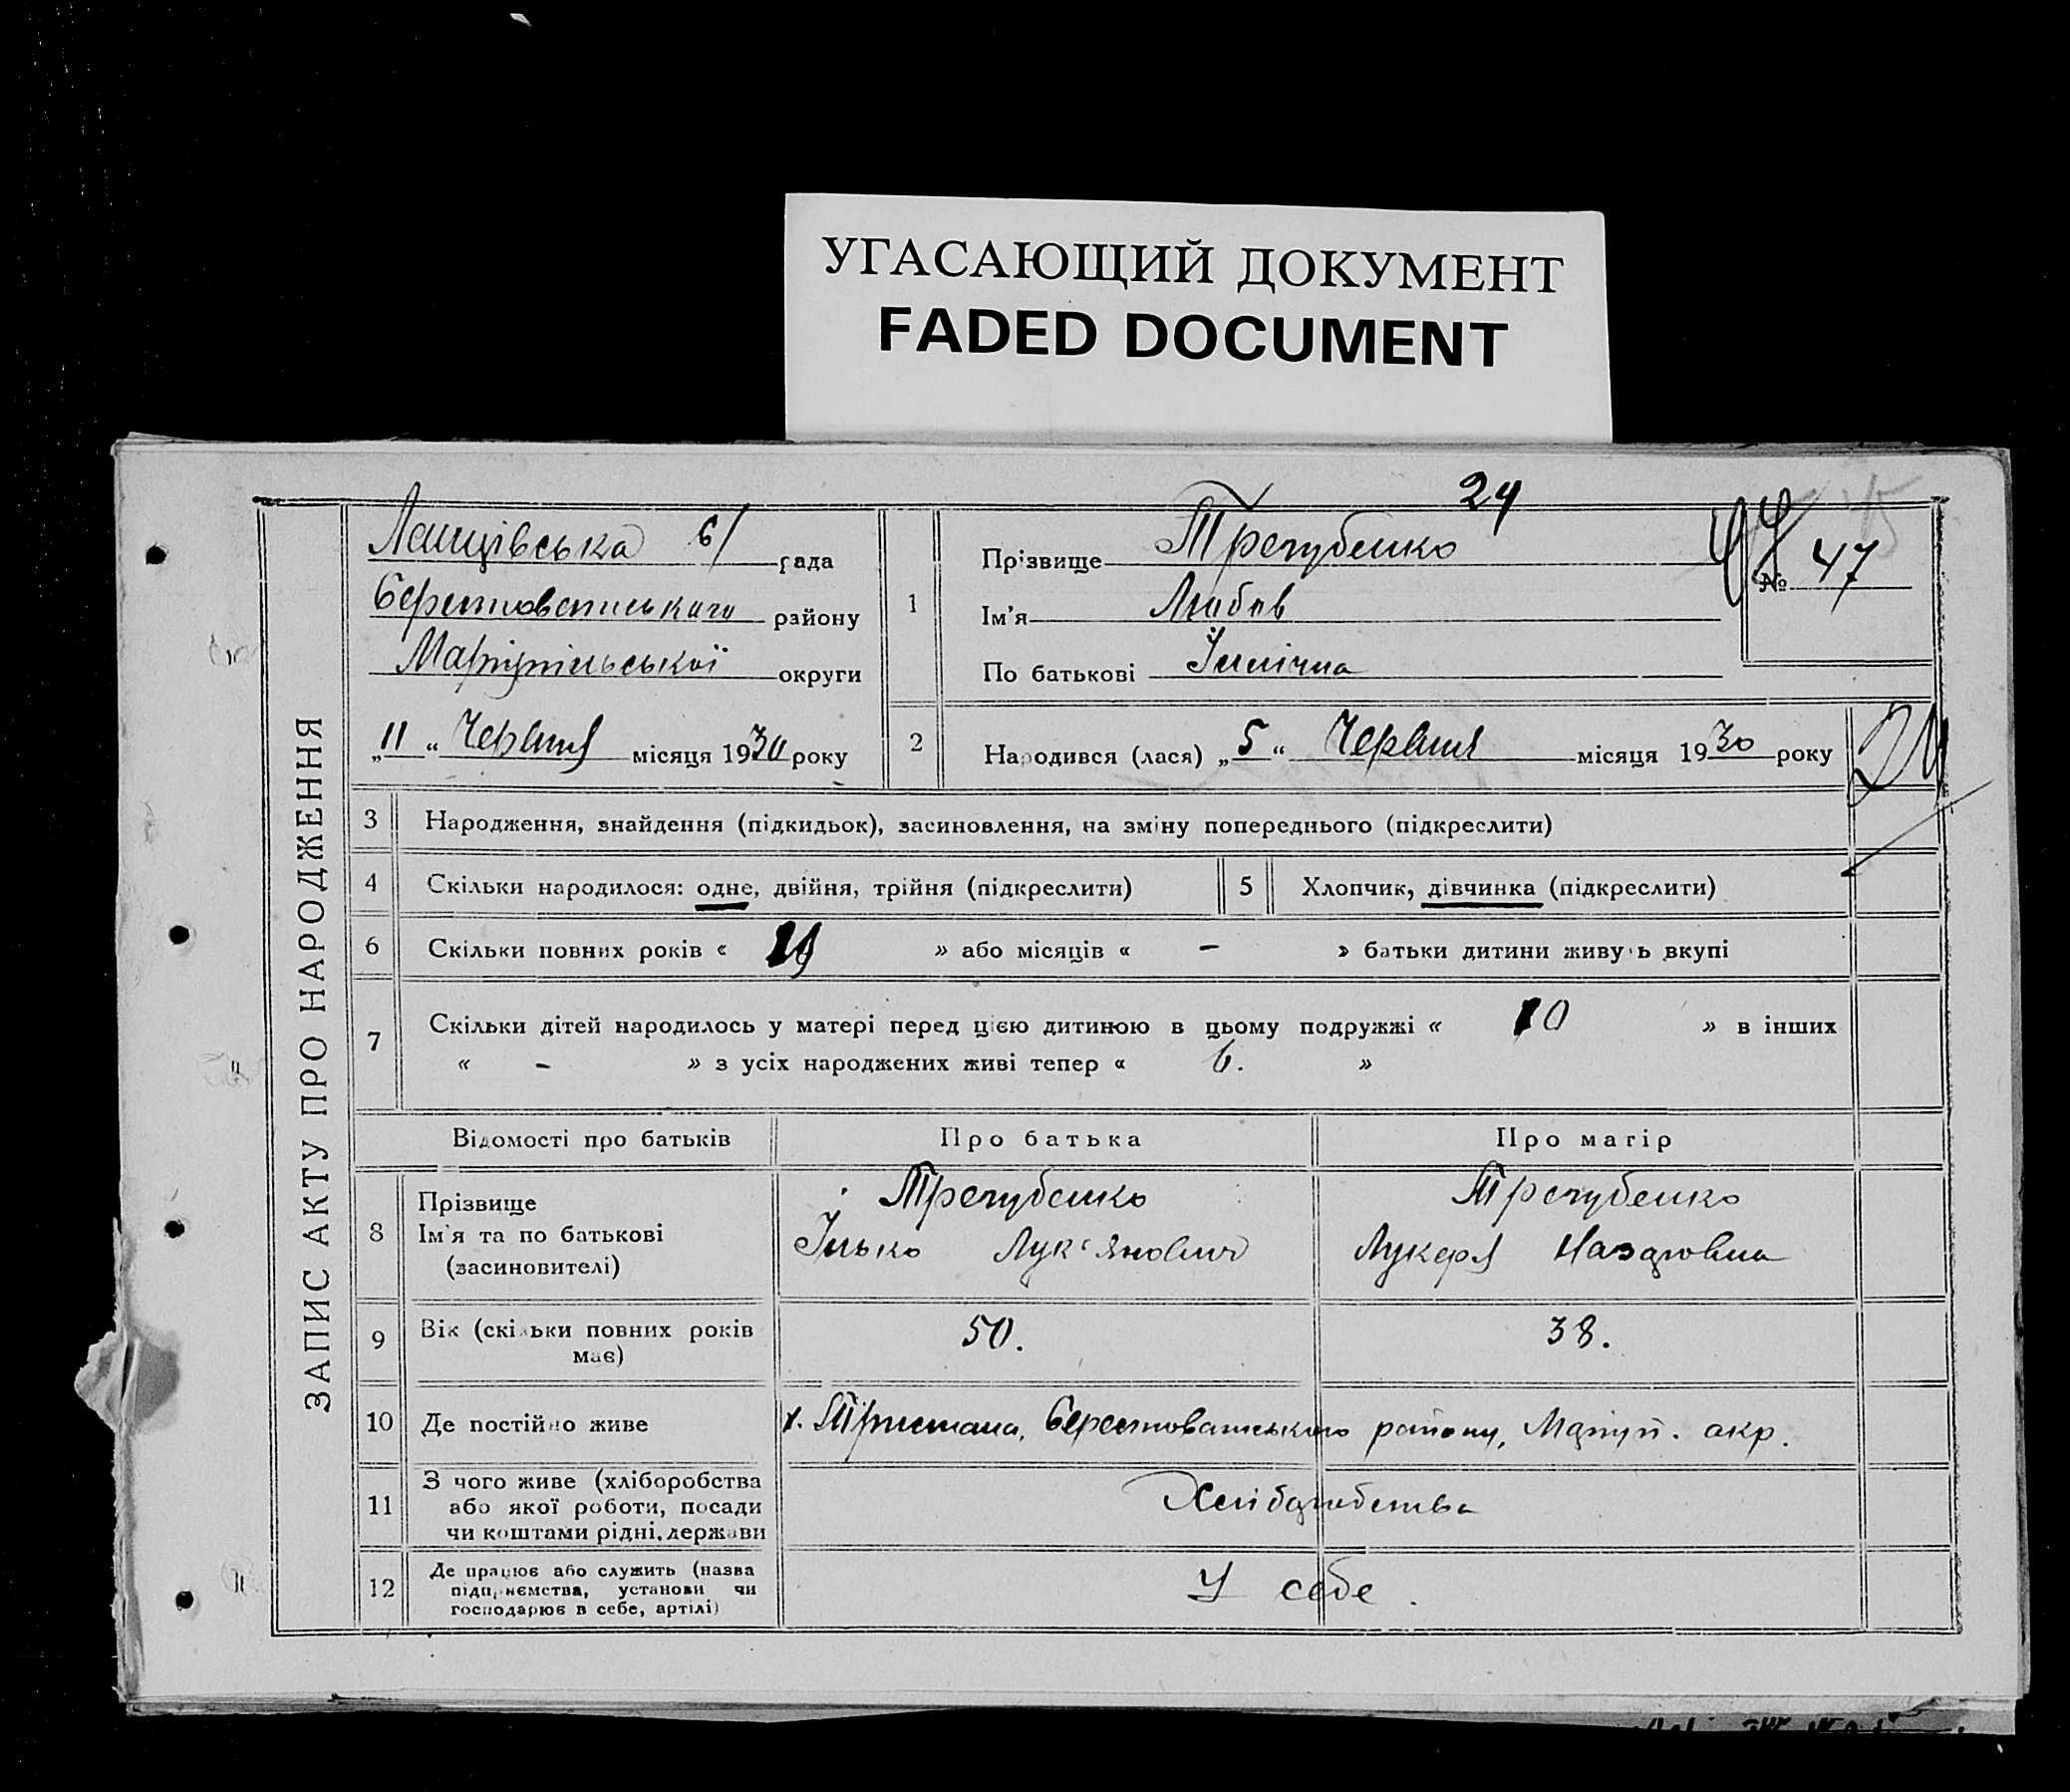 УГАСАЮЩИЙ ДОКУМЕНТ
FADED DOCUMENT
ЗАПИС АКТУ ПРО НАРОДЖЕННЯ
24
с/ рада
Берестоватського району
Маріупільської округи
„11“ Червня місяця 1930 року
1
Прізвище Трегубенко
Ім'я Любов
По батькові Іллічна
№ 47
2
Народився (лася) „5“ Червня місяця 1930 року
3 Народження, знайдення (підкидьок), засиновлення, на зміну попереднього (підкреслити)
4 Скільки народилося: одне, двійня, трійня (підкреслити)
5 Хлопчик, дівчинка (підкреслити)
6 Скільки повних років « » або місяців « - » батьки дитини живуть вкупі
7 Скільки дітей народилось у матері перед цією дитиною в цьому подружжі « 10 » в інших
« - » з усіх народжених живі тепер « 6. »
Відомості про батьків Про батька Про матір
8 Прізвище Трегубенко Трегубенко
Ім'я та по батькові Ілько Лук'янович Лукеря Назаровна
(засиновителі)
9 Вік (скільки повних років 50. 38.
має)
10 Де постійно живе х. Берестоватського району, Маріуп. окр.
11 З чого живе (хліборобства Хліборобства
або якої роботи, посади
чи коштами рідні, держави
12 Де працює або служить (назва У себе.
підприємства, установи чи
господарює в себе, артілі)